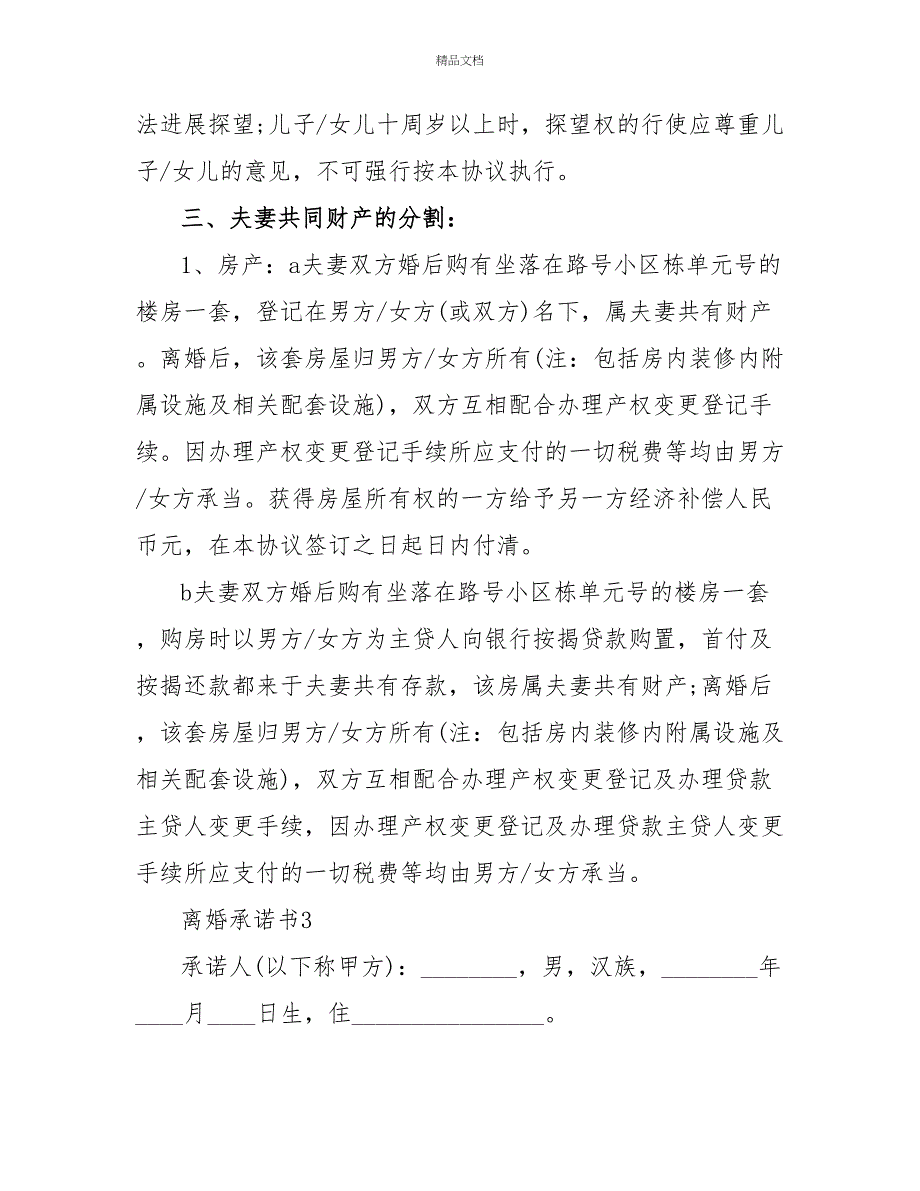 精品文档
法进展探望;儿子/女儿十周岁以上时，探望权的行使应尊重儿
子/女儿的意见，不可强行按本协议执行。
三、夫妻共同财产的分割：
1、房产：a夫妻双方婚后购有坐落在路号小区栋单元号的
楼房一套，登记在男方/女方(或双方)名下，属夫妻共有财产
。离婚后，该套房屋归男方/女方所有(注：包括房内装修内附
属设施及相关配套设施)，双方互相配合办理产权变更登记手
续。因办理产权变更登记手续所应支付的一切税费等均由男方
/女方承当。获得房屋所有权的一方给予另一方经济补偿人民
币元，在本协议签订之日起日内付清。
b夫妻双方婚后购有坐落在路号小区栋单元号的楼房一套
，购房时以男方/女方为主贷人向银行按揭贷款购置，首付及
按揭还款都来于夫妻共有存款，该房属夫妻共有财产;离婚后
，该套房屋归男方/女方所有(注：包括房内装修内附属设施及
相关配套设施)，双方互相配合办理产权变更登记及办理贷款
主贷人变更手续，因办理产权变更登记及办理贷款主贷人变更
手续所应支付的一切税费等均由男方/女方承当。
离婚承诺书3
承诺人(以下称甲方)：________，男，汉族，________年
____月____日生，住________________。